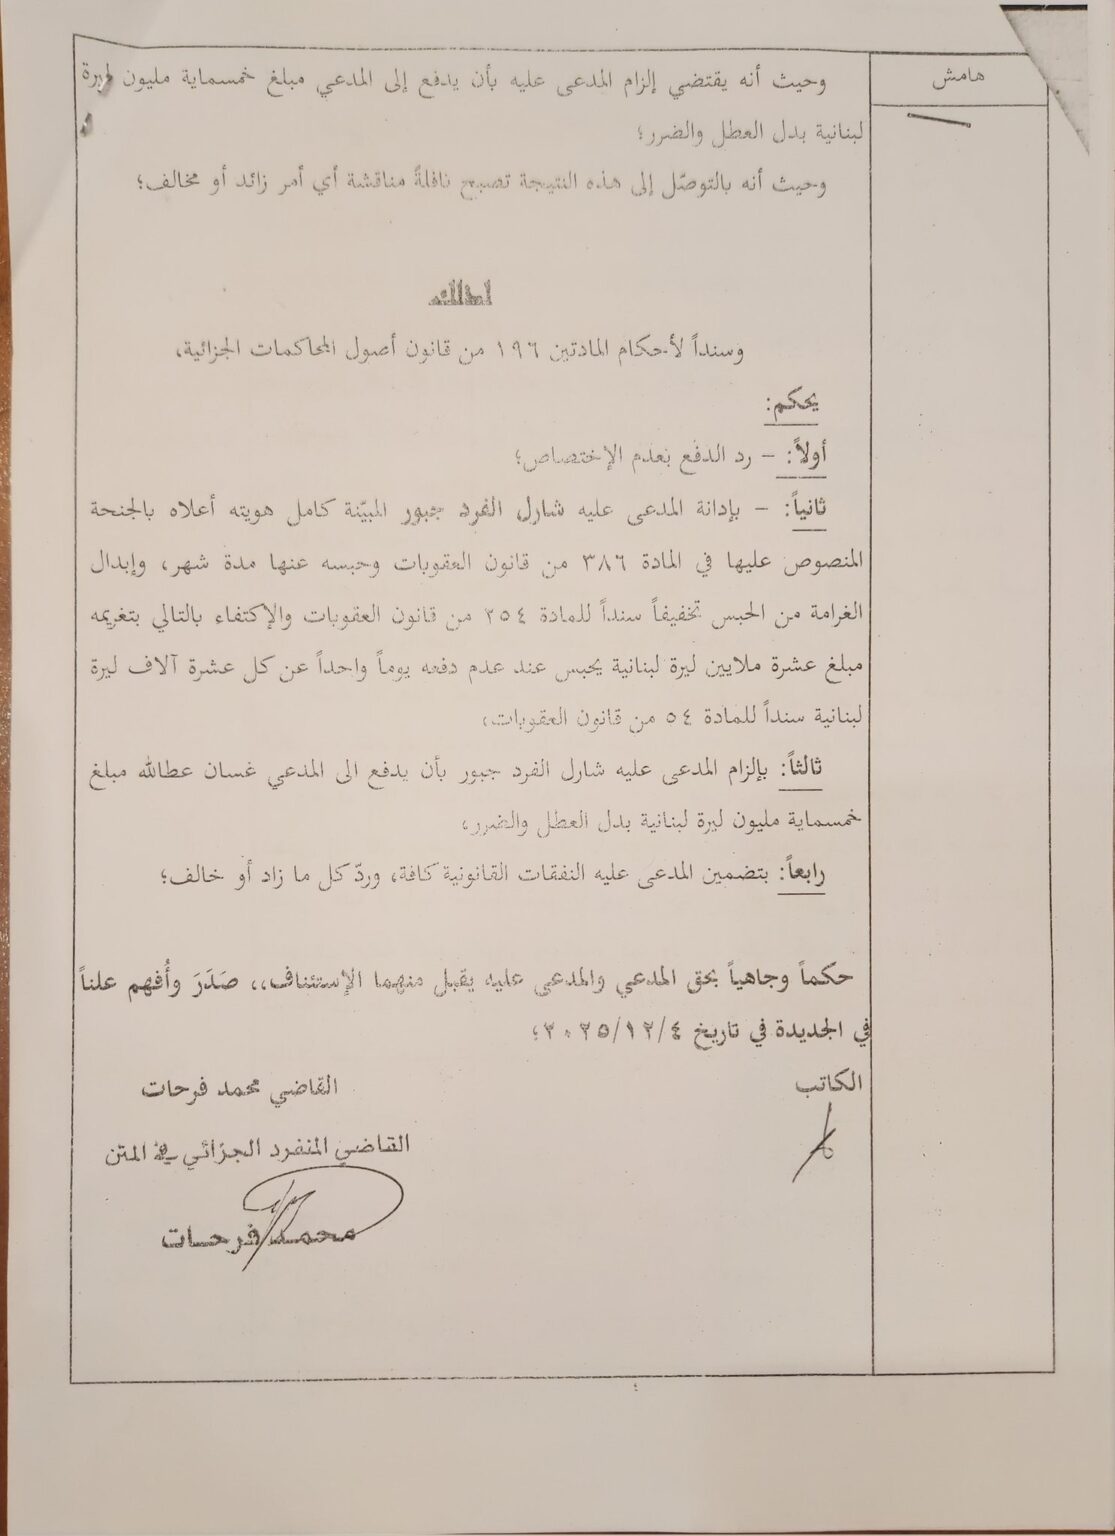 هامش
وحيث أنه يقتضي إلزام المدعى عليه بأن يدفع إلى المدعي مبلغ خمسماية مليون ليرة
لبنانية بدل العطل والضرر؛
وحيث أنه بالتوصّل إلى هذه النتيجة تصبح نافلةً مناقشة أي أمر زائد أو مخالف؛
لذلك
وسنداً لأحكام المادتين ١٩٦ من قانون أصول المحاكمات الجزائية،
يحكم:
أولاً: – رد الدفع بعدم الإختصاص؛
ثانياً: – بإدانة المدعى عليه شارل الفرد جبور المبيّنة كامل هويته أعلاه بالجنحة
المنصوص عليها في المادة ٣٨٦ من قانون العقوبات وحبسه عنها مدة شهر، وإبدال
الغرامة من الحبس تخفيفاً سنداً للمادة ٢٥٤ من قانون العقوبات والإكتفاء بالتالي بتغريمه
مبلغ عشرة ملايين ليرة لبنانية يحبس عند عدم دفعه يوماً واحداً عن كل عشرة آلاف ليرة
لبنانية سنداً للمادة ٥٤ من قانون العقوبات،
ثالثاً: بإلزام المدعى عليه شارل الفرد جبور بأن يدفع الى المدعي غسان عطالله مبلغ
خمسماية مليون ليرة لبنانية بدل العطل والضرر،
رابعاً: بتضمين المدعى عليه النفقات القانونية كافة، وردّ كل ما زاد أو خالف؛
حكماً وجاهياً بحق المدعي والمدعى عليه يقبل منهما الإستئناف،، صَدَرَ وأُفهم علناً
في الجديدة في تاريخ ٢٠٢٥/١٢/٤؛
الكاتب
القاضي محمد فرحات
القاضي المنفرد الجزائي في المتن
محمد فرحات